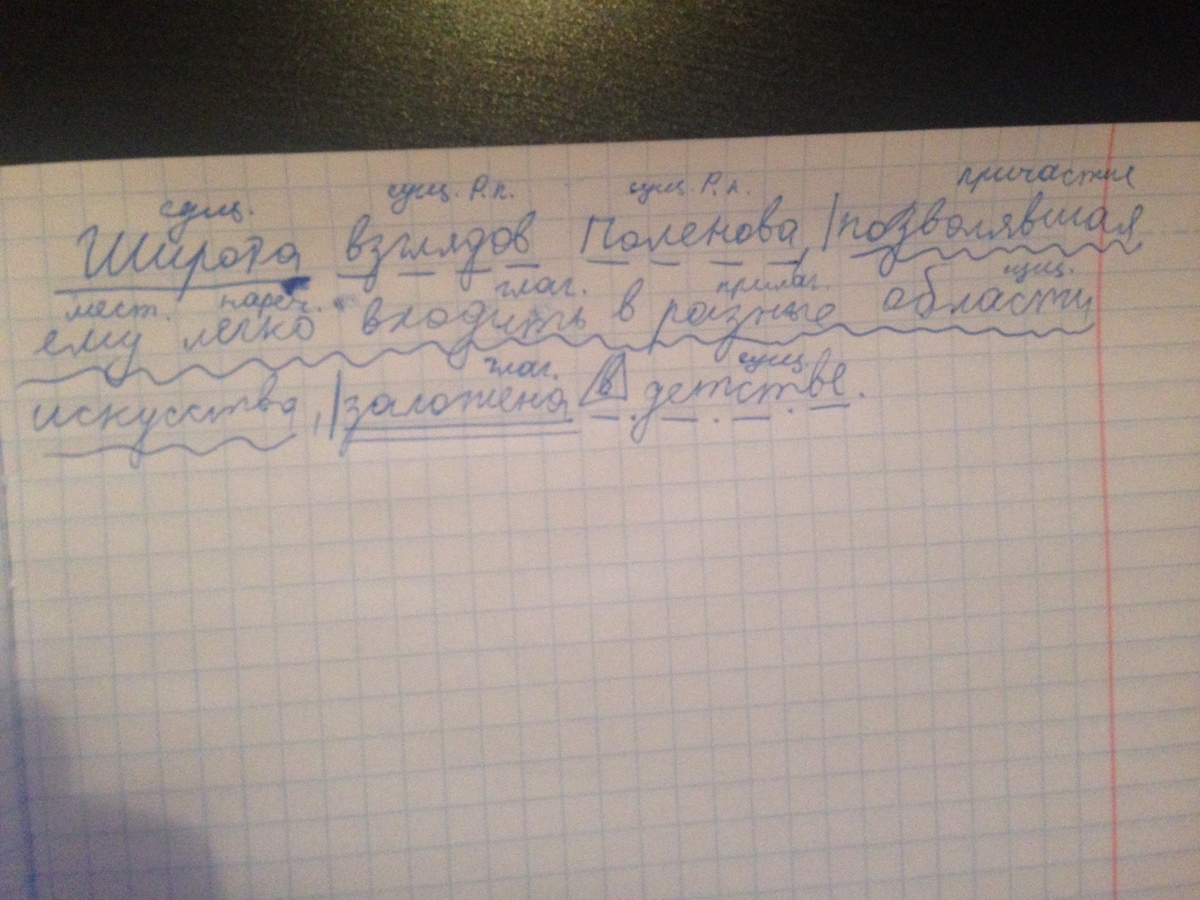 сущ. сущ. Р.п. сущ. Р.п. причастие
Широта взглядов Поленова, |позволявшая
мест. нареч. глаг. прилаг. сущ.
ему легко входить в разные области
глаг. сущ.
искусства, | заложена в детстве.